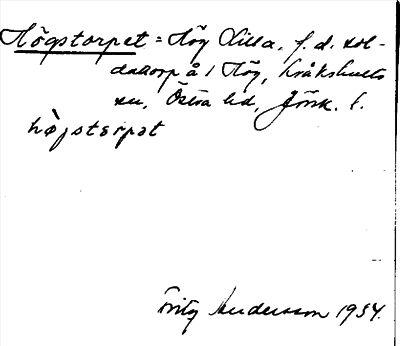 Högstorpet = Hög Lilla, f.d. sol-
dattorp å 1 Hög, Kråkshults
sn, Östra hd, Jönk. l.
hø̀gstɛrpət
Fritz Andersson 1934.